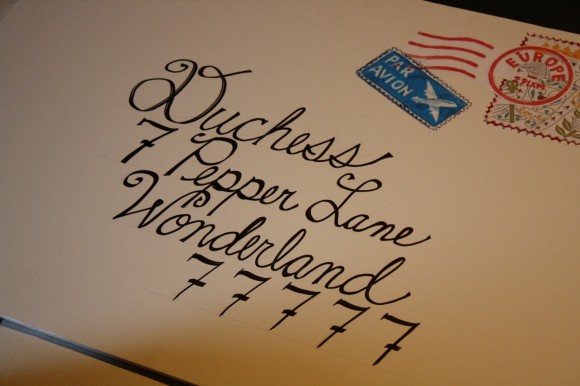 Duchess
7 Pepper Lane
Wonderland
77777
PAR
AVION
EUROPE